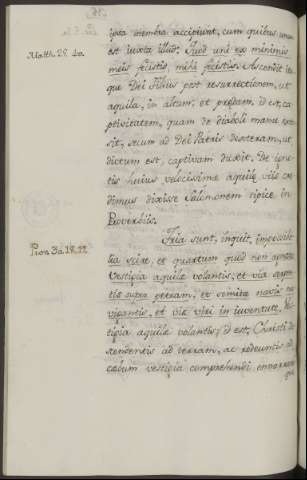 ipsa membra accipiunt, cum quibus unum
est iuxta illud: Quod uni ex minimis
Matth. 25. 40.
meis fecistis, mihi fecistis. Ascendit ita-
que Dei Filius post resurrectionem, ut
aquila, in altum, et praedam, id est, ca-
ptivitatem, quam de diaboli manu exces-
sit, secum ad Dei Patris dexteram, ut
dictum est, captivam duxit. De
huius velocissimae aquilae viis cre-
dimus dixisse Salomonem
Proverbiis.
Tria sunt, inquit, impossibi-
Prov. 30. 18. 19.
lia scire, et quartum quod non
Vestigia aquilae volantis, et via serpen-
tis supra petram, et semita navis na-
vigantis, et via viri in iuventute. Ves-
tigia aquilae volantis, id est, Christi de-
scendentis ad terram, ac redeuntis ad
coelum vestigia comprehendi